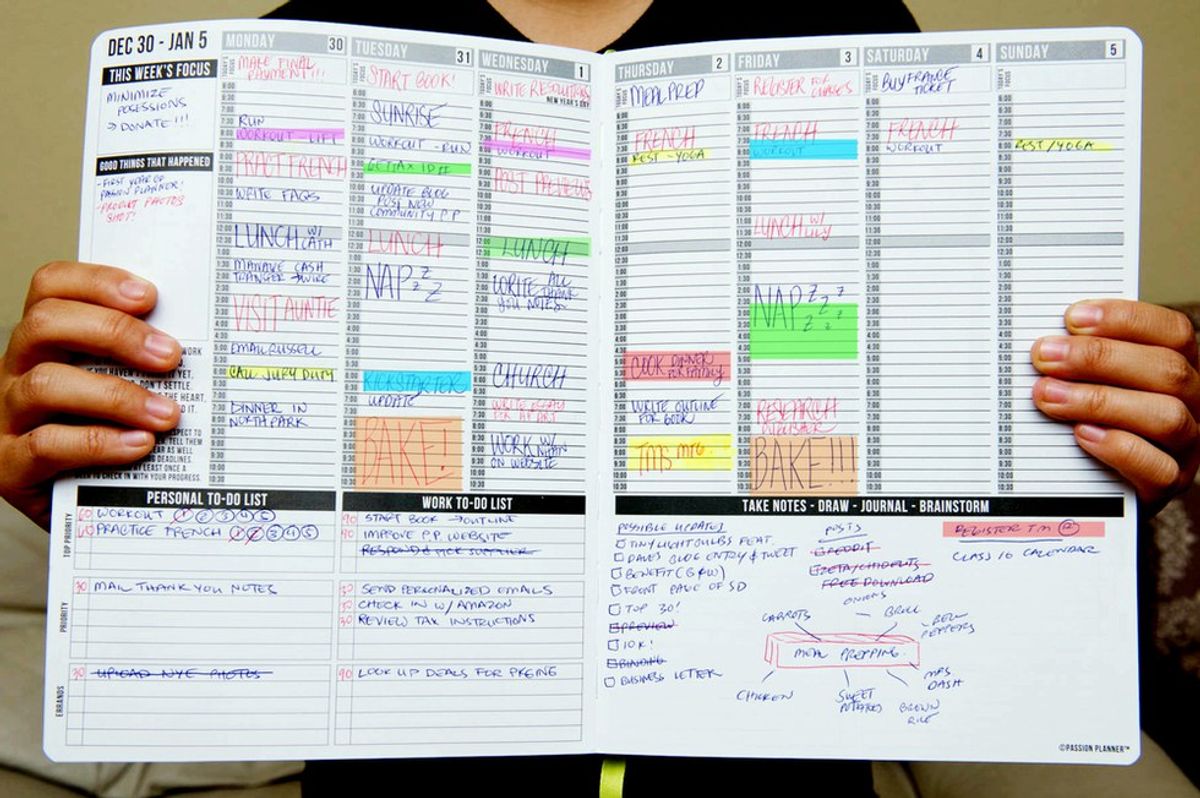 DEC 30 - JAN 5
THIS WEEK'S FOCUS
MINIMIZE
POSESSIONS
→ DONATE!!!
GOOD THINGS THAT HAPPENED
- FIRST YEAR OF
PASSION PLANNER!
- PRODUCT PHOTOS
SHOT!
MONDAY 30
TODAY'S FOCUS
MAKE FINAL
PAYMENT!!!
RUN
WORKOUT - LIFT
PRACT FRENCH
WRITE FAQS
LUNCH W/
CATH
MANAGE CASH
TRANSFER → WIRE
VISIT AUNTIE
EMAIL RUSSELL
CALL JURY DUTY
DINNER IN
NORTH PARK
TUESDAY 31
TODAY'S FOCUS
START BOOK!
SUNRISE
WORKOUT - RUN
GET TAX ID #
UPDATE BLOG
POST NEW
COMMUNITY P.P
LUNCH
NAP z z z
KICKSTARTER
UPDATE
BAKE!
WEDNESDAY 1
TODAY'S FOCUS
WRITE RESOLUTIONS
NEW YEAR'S DAY
FRENCH
WORKOUT
POST PREVIEWS
LUNCH
WRITE ALL
THANK
YOU NOTES
CHURCH
WRITE ESSAY
FOR AP ART
WORK W/
NHAN
ON WEBSITE
THURSDAY 2
TODAY'S FOCUS
MEAL PREP
FRENCH
REST - YOGA
COOK DINNER
FOR FAMILY
WRITE OUTLINE
FOR BOOK
TMS MTG.
FRIDAY 3
TODAY'S FOCUS
REGISTER FOR
CLASSES
FRENCH
WORKOUT
LUNCH W/
LILY
NAP z z z z z
RESEARCH
BAKE!!!
SATURDAY 4
TODAY'S FOCUS
BUY FRANCE
TICKET
FRENCH
WORKOUT
SUNDAY 5
TODAY'S FOCUS
REST/YOGA
PERSONAL TO-DO LIST
TOP PRIORITY
60 WORKOUT 1 2 3 4 5 6
60 PRACTICE FRENCH 1 2 3 4 5
PRIORITY
30 MAIL THANK YOU NOTES
ERRANDS
30 UPLOAD NYE PHOTOS
WORK TO-DO LIST
90 START BOOK → OUTLINE
90 IMPROVE P.P. WEBSITE
RESPOND & PICK SUPPLIER
30 SEND PERSONALIZED EMAILS
30 CHECK IN W/ AMAZON
30 REVIEW TAX INSTRUCTIONS
90 LOOK UP DEALS FOR PKGING
TAKE NOTES - DRAW - JOURNAL - BRAINSTORM
POSSIBLE UPDATES
TINY LIGHTBULBS FEAT.
DAVES BLOG ENTRY & TWEET
BENEFIT (B&W)
FRONT PAGE OF SD
TOP 30!
PREVIEW
10K!
BINDING
BUSINESS LETTER
POSTS
REDDIT
FREE DOWNLOAD
REGISTER TM ®
CLASS 16 CALENDAR
ONIONS
CARROTS
BROLL
BELL
PEPPERS
MEAL PREPPING
CHICKEN
SWEET
POTATOES
BROWN
RICE
MRS
DASH
©PASSION PLANNER™